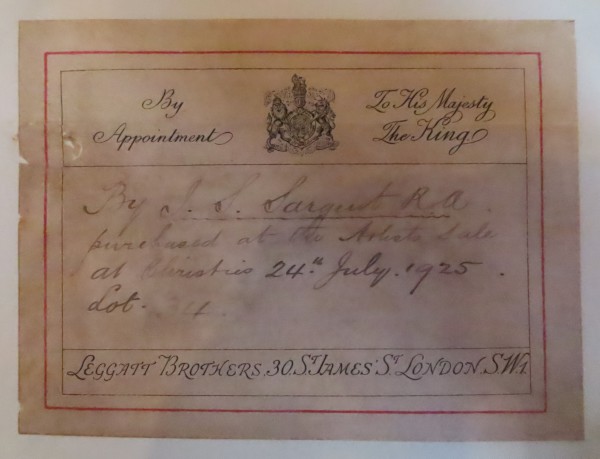 By To His Majesty
Appointment The King
By J. S. Sargent R A.
purchased at the Artists Sale
at Christies 24th July. 1925.
Lot.
LEGGATT BROTHERS, 30, ST JAMES' ST LONDON, S.W.1.